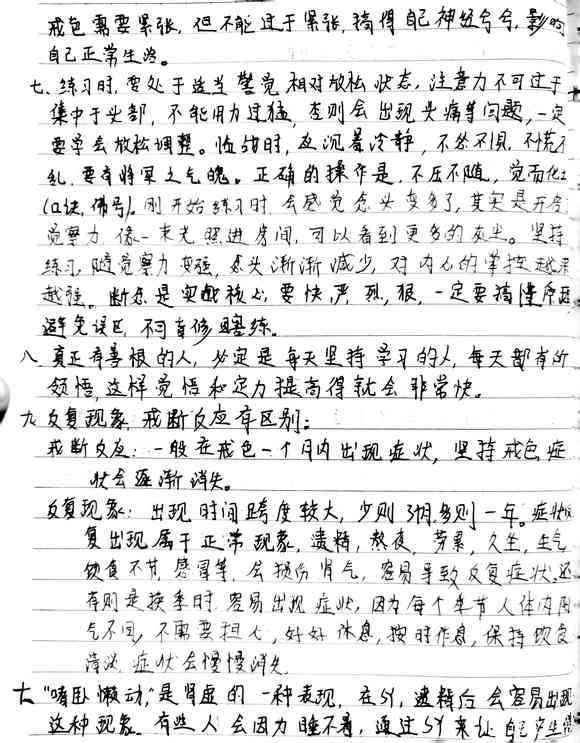 戒色需要紧张,但不能过于紧张,搞得自己神经兮兮,影响
自己正常生活。
七、练习时,要处于适当警觉,相对放松状态,注意力不可过于
集中于头部,不能用力过猛,否则会出现头痛等问题,一定
要学会放松调整。临战时,应沉着冷静,不怂不惧,不慌不
乱,要有将军之气魄。正确的操作是,不压不随,觉而化之
(口诀,佛号)。刚开始练习时,会感觉念头变多了,其实是开启
觉察力,像一束光照进房间,可以看到更多的灰尘。坚持
练习,随觉察力变强,念头渐渐减少,对内心的掌控越来
越强。断念是实战核心,要快,严,烈,狠,一定要搞懂原理
避免误区,不可盲修瞎练。
八、真正有善根的人,必定是每天坚持学习的人,每天都有所
领悟,这样觉悟和定力提高得就会非常快。
九、反复现象,戒断反应有区别:
戒断反应:一般在戒色一个月内出现症状,坚持戒色症
状会逐渐消失。
反复现象:出现时间跨度较大,少则3月,多则一年。症状反
复出现属于正常现象,遗精,熬夜,劳累,久坐,生气
饮食不节,感冒等,会损伤肾气,容易导致反复症状,还
有则是换季时,容易出现症状,因为每个季节人体内阴
气不同,不需要担心,好好休息,按时作息,保持饮食
清淡,症状会慢慢消失
十、"嗜卧懒动",是肾虚的一种表现,在SY,遗精后会容易出现
这种现象。有些人会因为睡不着,通过SY来让自己产生